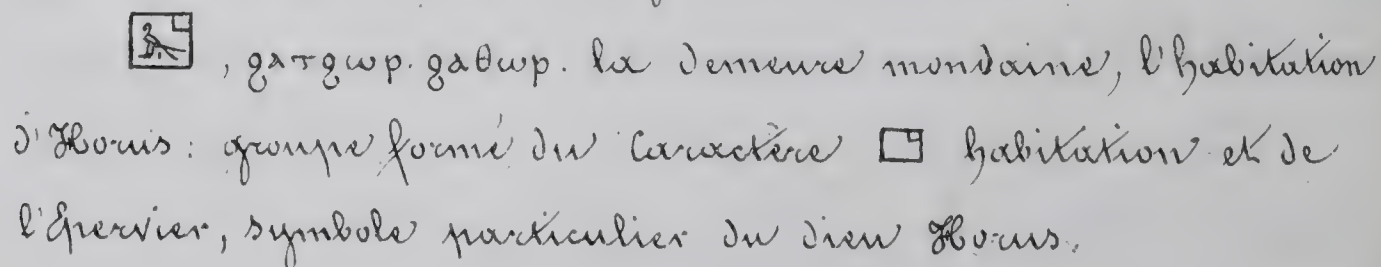 𓉡, ϩⲁⲧϩⲱⲣ. ϩⲁⲑⲱⲣ. la demeure mondaine, l'habitation
d'Horus: groupe formé du Caractère 𓉗 habitation et de
l'Épervier, symbole particulier du dieu Horus.